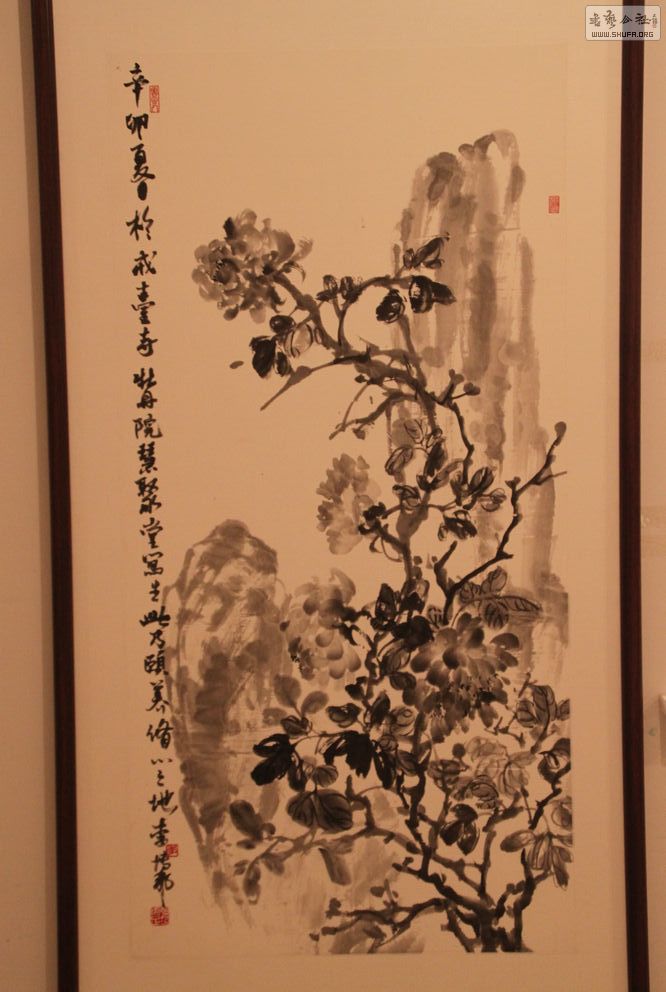 书艺公社
WWW.SHUFA.ORG
辛卯夏日於戒臺寺牡丹院慧聚堂寫生此乃頤養脩心之地李